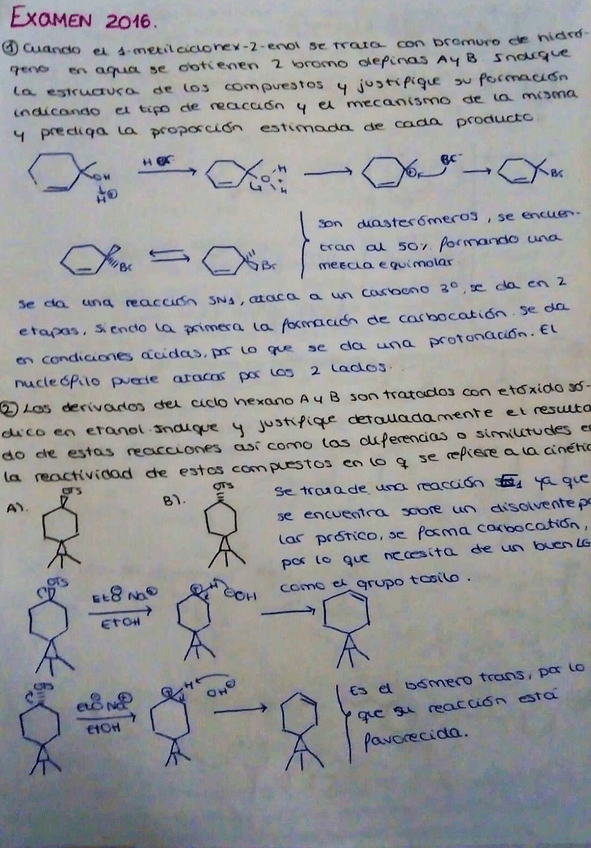 EXAMEN 2016.
① Cuando el 1-metilciclohex-2-enol se trata con bromuro de hidró-
geno en agua se obtienen 2 bromo olefinas A y B. Indique
la estructura de los compuestos y justifique su formación
indicando el tipo de reacción y el mecanismo de la misma
y prediga la proporción estimada de cada producto.
OH
H⊕
HBr
H
H
Br⁻
Br
Br
Br
son diasterómeros, se encuen-
tran al 50% formando una
mezcla equimolar
Se da una reacción SN1, ataca a un carbono 3º, se da en 2
etapas, siendo la primera la formación de carbocatión. Se da
en condiciones ácidas, por lo que se da una protonación. El
nucleófilo puede atacar por los 2 lados.
② Los derivados del ciclo hexano A y B son tratados con etóxido só-
dico en etanol. Indique y justifique detalladamente el resulta
do de estas reacciones así como las diferencias o similitudes e
la reactividad de estos compuestos en lo q se refiere a la cinétic
A).
OTs
B).
OTs
Se trata de una reacción ya que
se encuentra sobre un disolvente po
lar prótico, se forma carbocatión,
por lo que necesita de un buen LG
como el grupo tosilo.
OTs
EtO⊖ Na⊕
EtOH
H
⊖OH
EtO⊖ Na⊕
EtOH
H
OH⊖
Es el isómero trans, por lo
que su reacción está
favorecida.